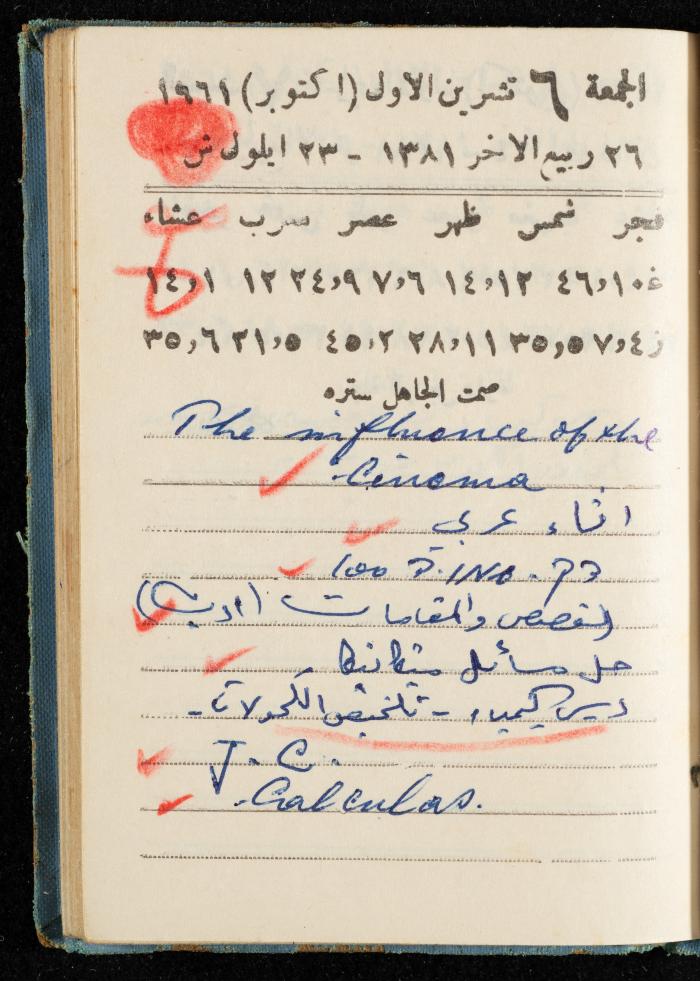 الجمعة ٦ تشرين الاول (اكتوبر) ١٩٦١
٢٦ ربيع الاخر ١٣٨١ - ٢٣ ايلول ش
فجر شمس ظهر عصر مغرب عشاء
غ ١٠,٤٦ ١٢,١٤ ٦,٧ ٩,٢٤ ١٢ ١,١٤
ز ٤,٧ ٥,٣٥ ١١,٢٨ ٢,٤٥ ٥,٢١ ٦,٣٥
صمت الجاهل ستره
The influence of the
Cinema
انشاء عربي
القصص والمقامات (ادب)
حل مسائل ميكانيكا
درس كيمياء - تلخيص الكحولات -
J. C.
Calculas.